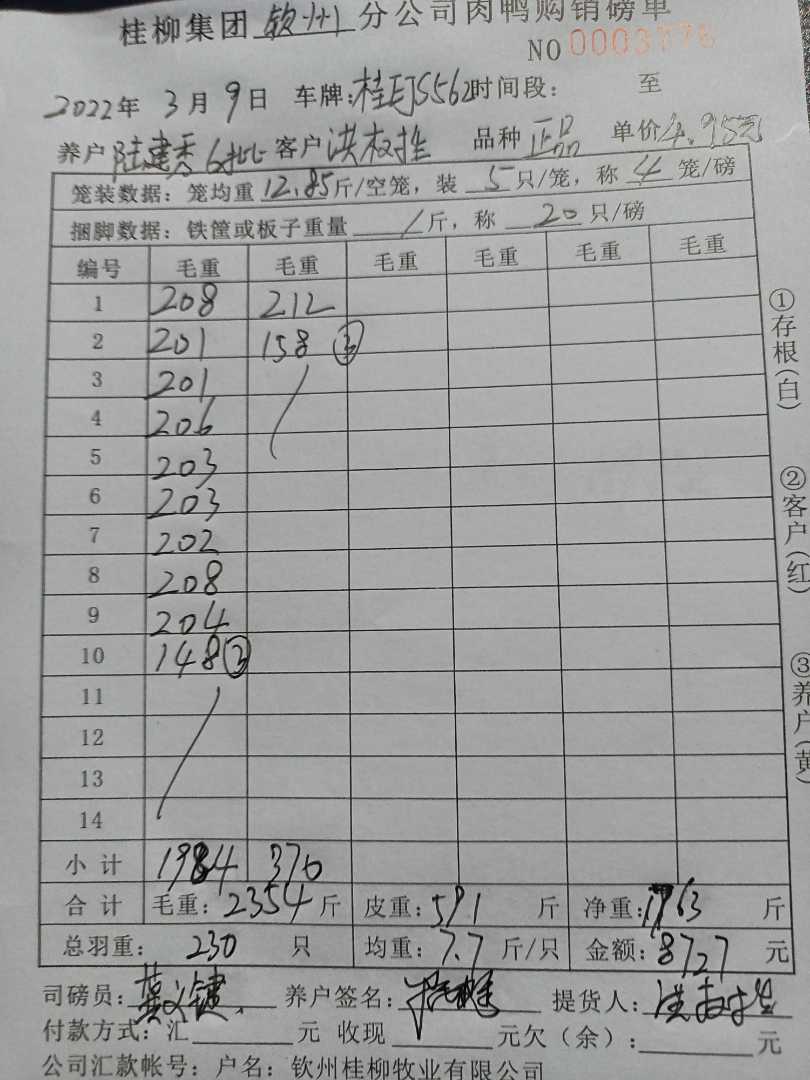 桂柳集团 钦州 分公司肉鸭购销磅单
NO 0003776
2022年 3月 9日 车牌: 时间段: 至
养户 陆建秀6批 客户 洪权 品种 正品 单价4.95元
笼装数据: 笼均重 12.85斤/空笼, 装 5 只/笼, 称 4 笼/磅
捆脚数据: 铁筐或板子重量 / 斤, 称 20 只/磅
编号 毛重 毛重 毛重 毛重 毛重 毛重
1 208 212
2 201 158 ③
3 201 /
4 206
5 203
6 203
7 202
8 208
9 204
10 148 ③
11 /
12
13
14
小计 1984 370
合计 毛重: 2354 斤 皮重: 591 斤 净重: 1763 斤
总羽重: 230 只 均重: 7.7 斤/只 金额: 8727 元
司磅员: 养户签名: 提货人:
付款方式: 汇 元 收现 元欠(余): 元
公司汇款帐号: 户名: 钦州桂柳牧业有限公司
①存根(白)
②客户(红)
③养户(黄)